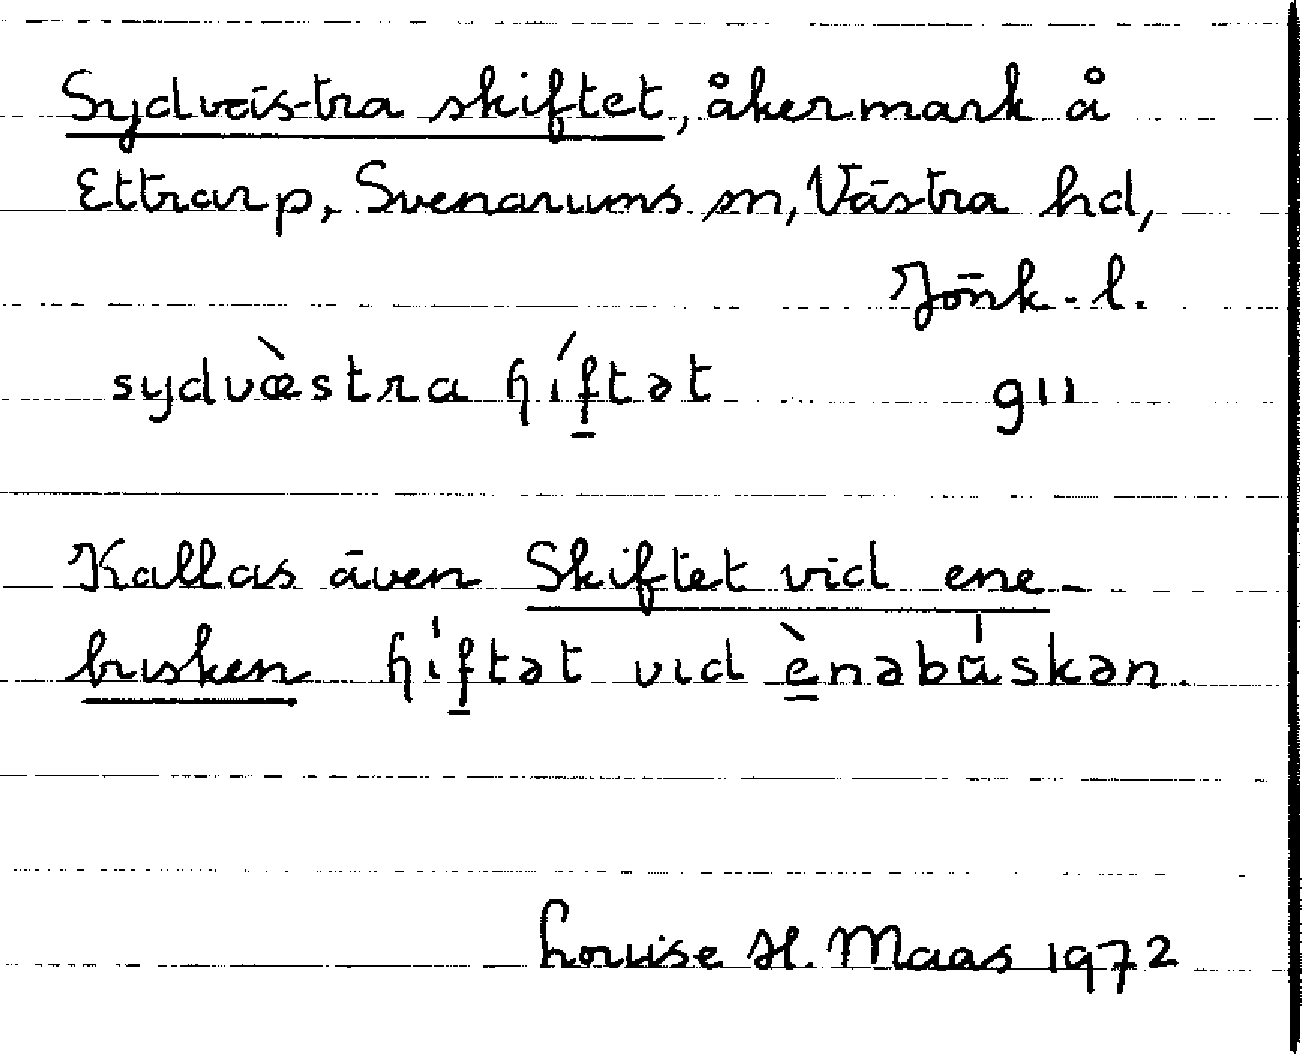 Sydvästra skiftet, åkermark å
Ettrarp, Svenarums sn, Västra hd,
Jönk. l.
sydvæ̀stra ɧíf̠tət g11
Kallas även Skiftet vid ene-
busken ɧíf̠tət vɩd è̠nəbúskən.
Louise H. Maas 1972